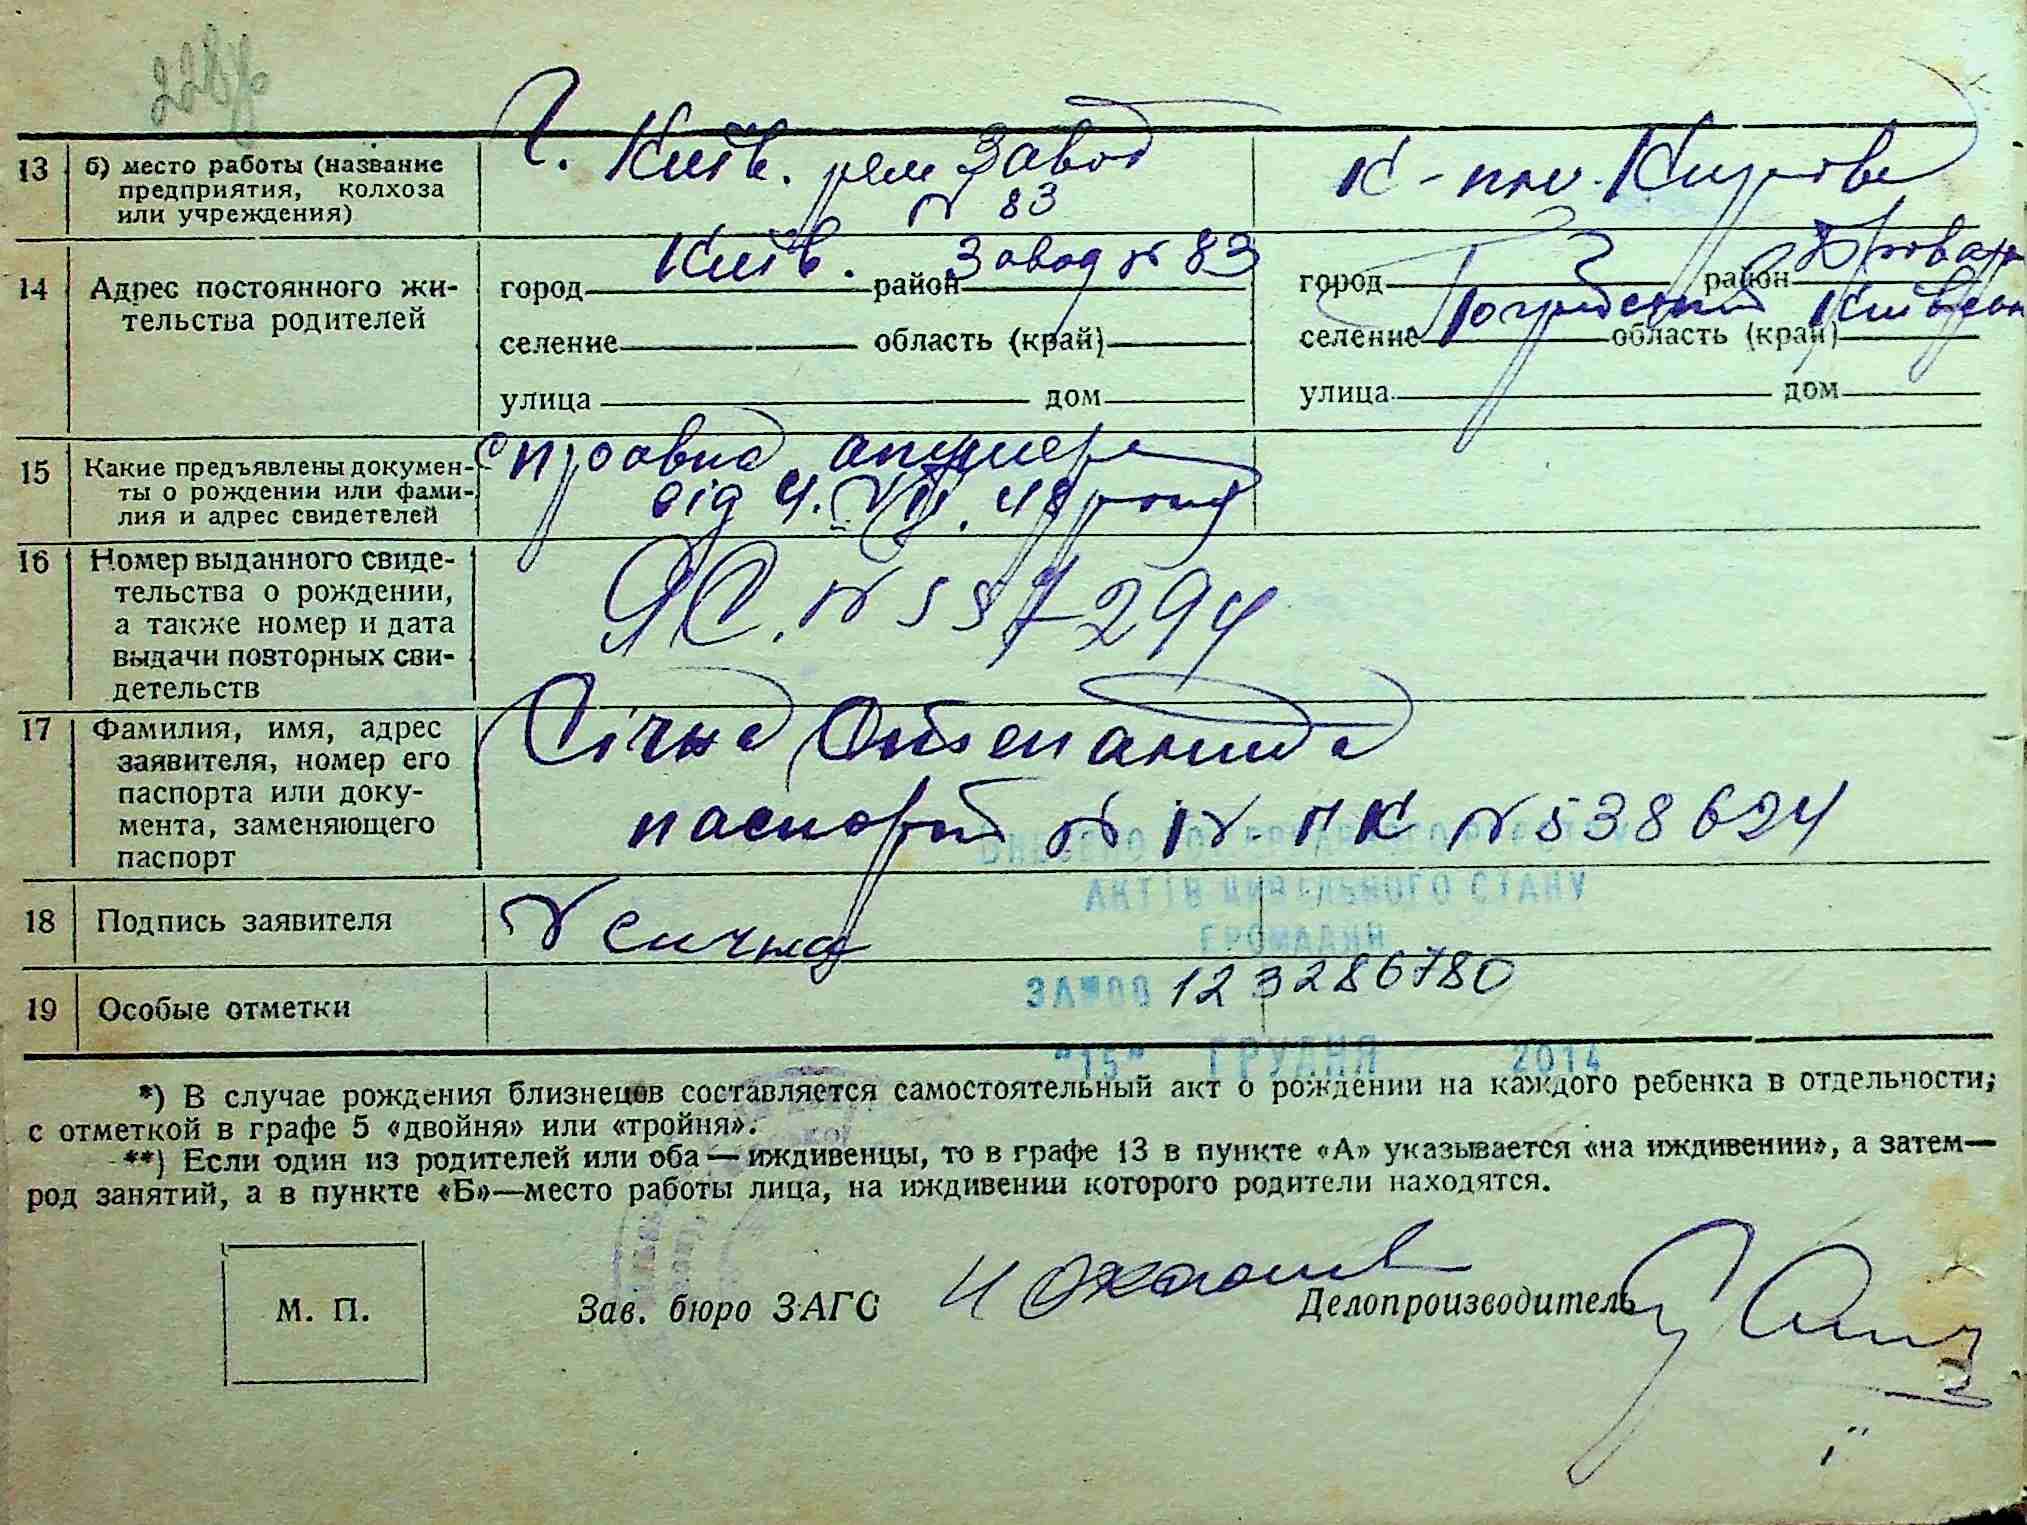 13 б) место работы (название предприятия, колхоза или учреждения)
г. Київ. рем Завод
№ 83
К-п ім. Кирова
14 Адрес постоянного жительства родителей
город Київ. район Завод № 83
селение область (край)
улица дом
город район Бровар
селение область (край) Київськ
улица дом
15 Какие предъявлены документы о рождении или фамилия и адрес свидетелей
Справка
від 4. VII. 48 року
16 Номер выданного свидетельства о рождении, а также номер и дата выдачи повторных свидетельств
ЯС. № 557294
17 Фамилия, имя, адрес заявителя, номер его паспорта или документа, заменяющего паспорт
Січна
паспорт № IV ПК № 538624
18 Подпись заявителя
Сична
19 Особые отметки
ВНЕСЕНО ДО ДЕРЖАВНОГО РЕЄСТРУ
АКТІВ ЦИВІЛЬНОГО СТАНУ
ГРОМАДЯН
ЗА №00 123286780
"15" ГРУДНЯ 2014
*) В случае рождения близнецов составляется самостоятельный акт о рождении на каждого ребенка в отдельности,
с отметкой в графе 5 «двойня» или «тройня».
**) Если один из родителей или оба — иждивенцы, то в графе 13 в пункте «А» указывается «на иждивении», а затем—
род занятий, а в пункте «Б»—место работы лица, на иждивении которого родители находятся.
М. П.
Зав. бюро ЗАГС
Делопроизводитель